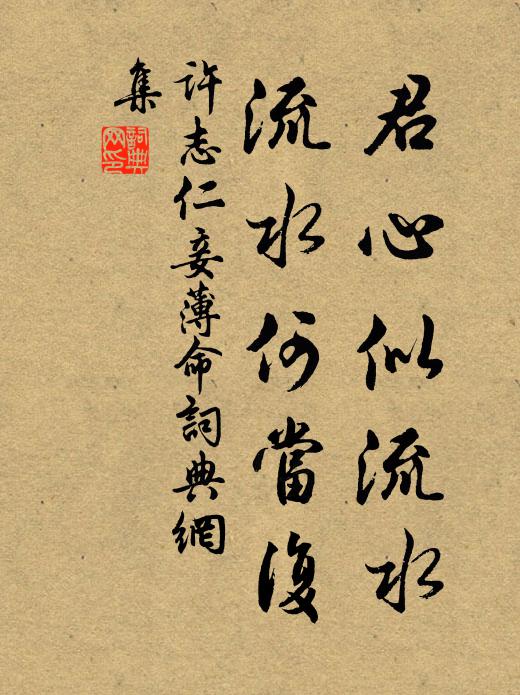 君心似流水
流水何當復
許志仁妾薄命詞典網
集
詞典網印